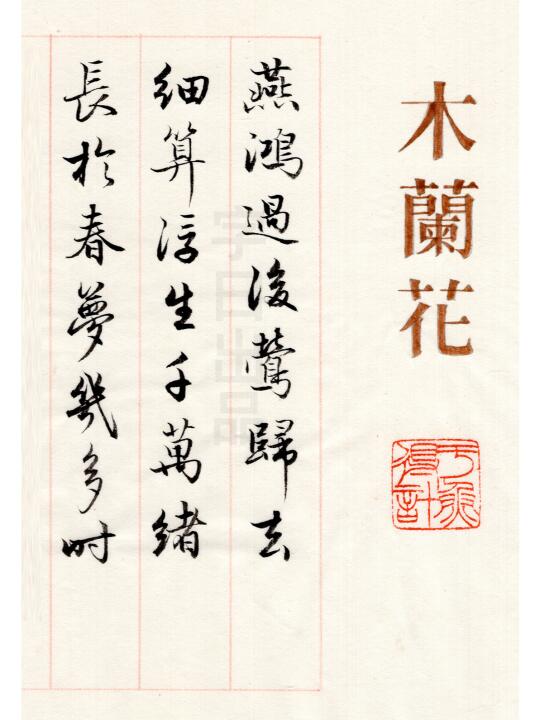 木蘭花
燕鴻過後鶯歸去
細算浮生千萬緒
長於春夢幾多时
字日出品